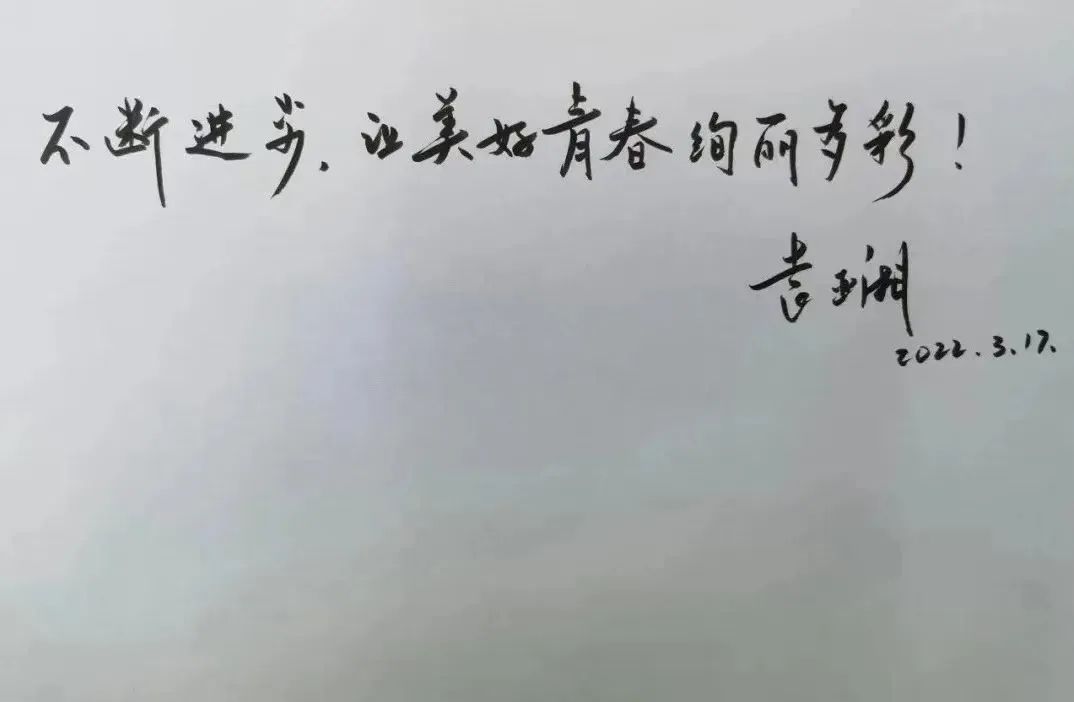 不断进步,让美好青春绚丽多彩!
袁亚湘
2022.3.17.